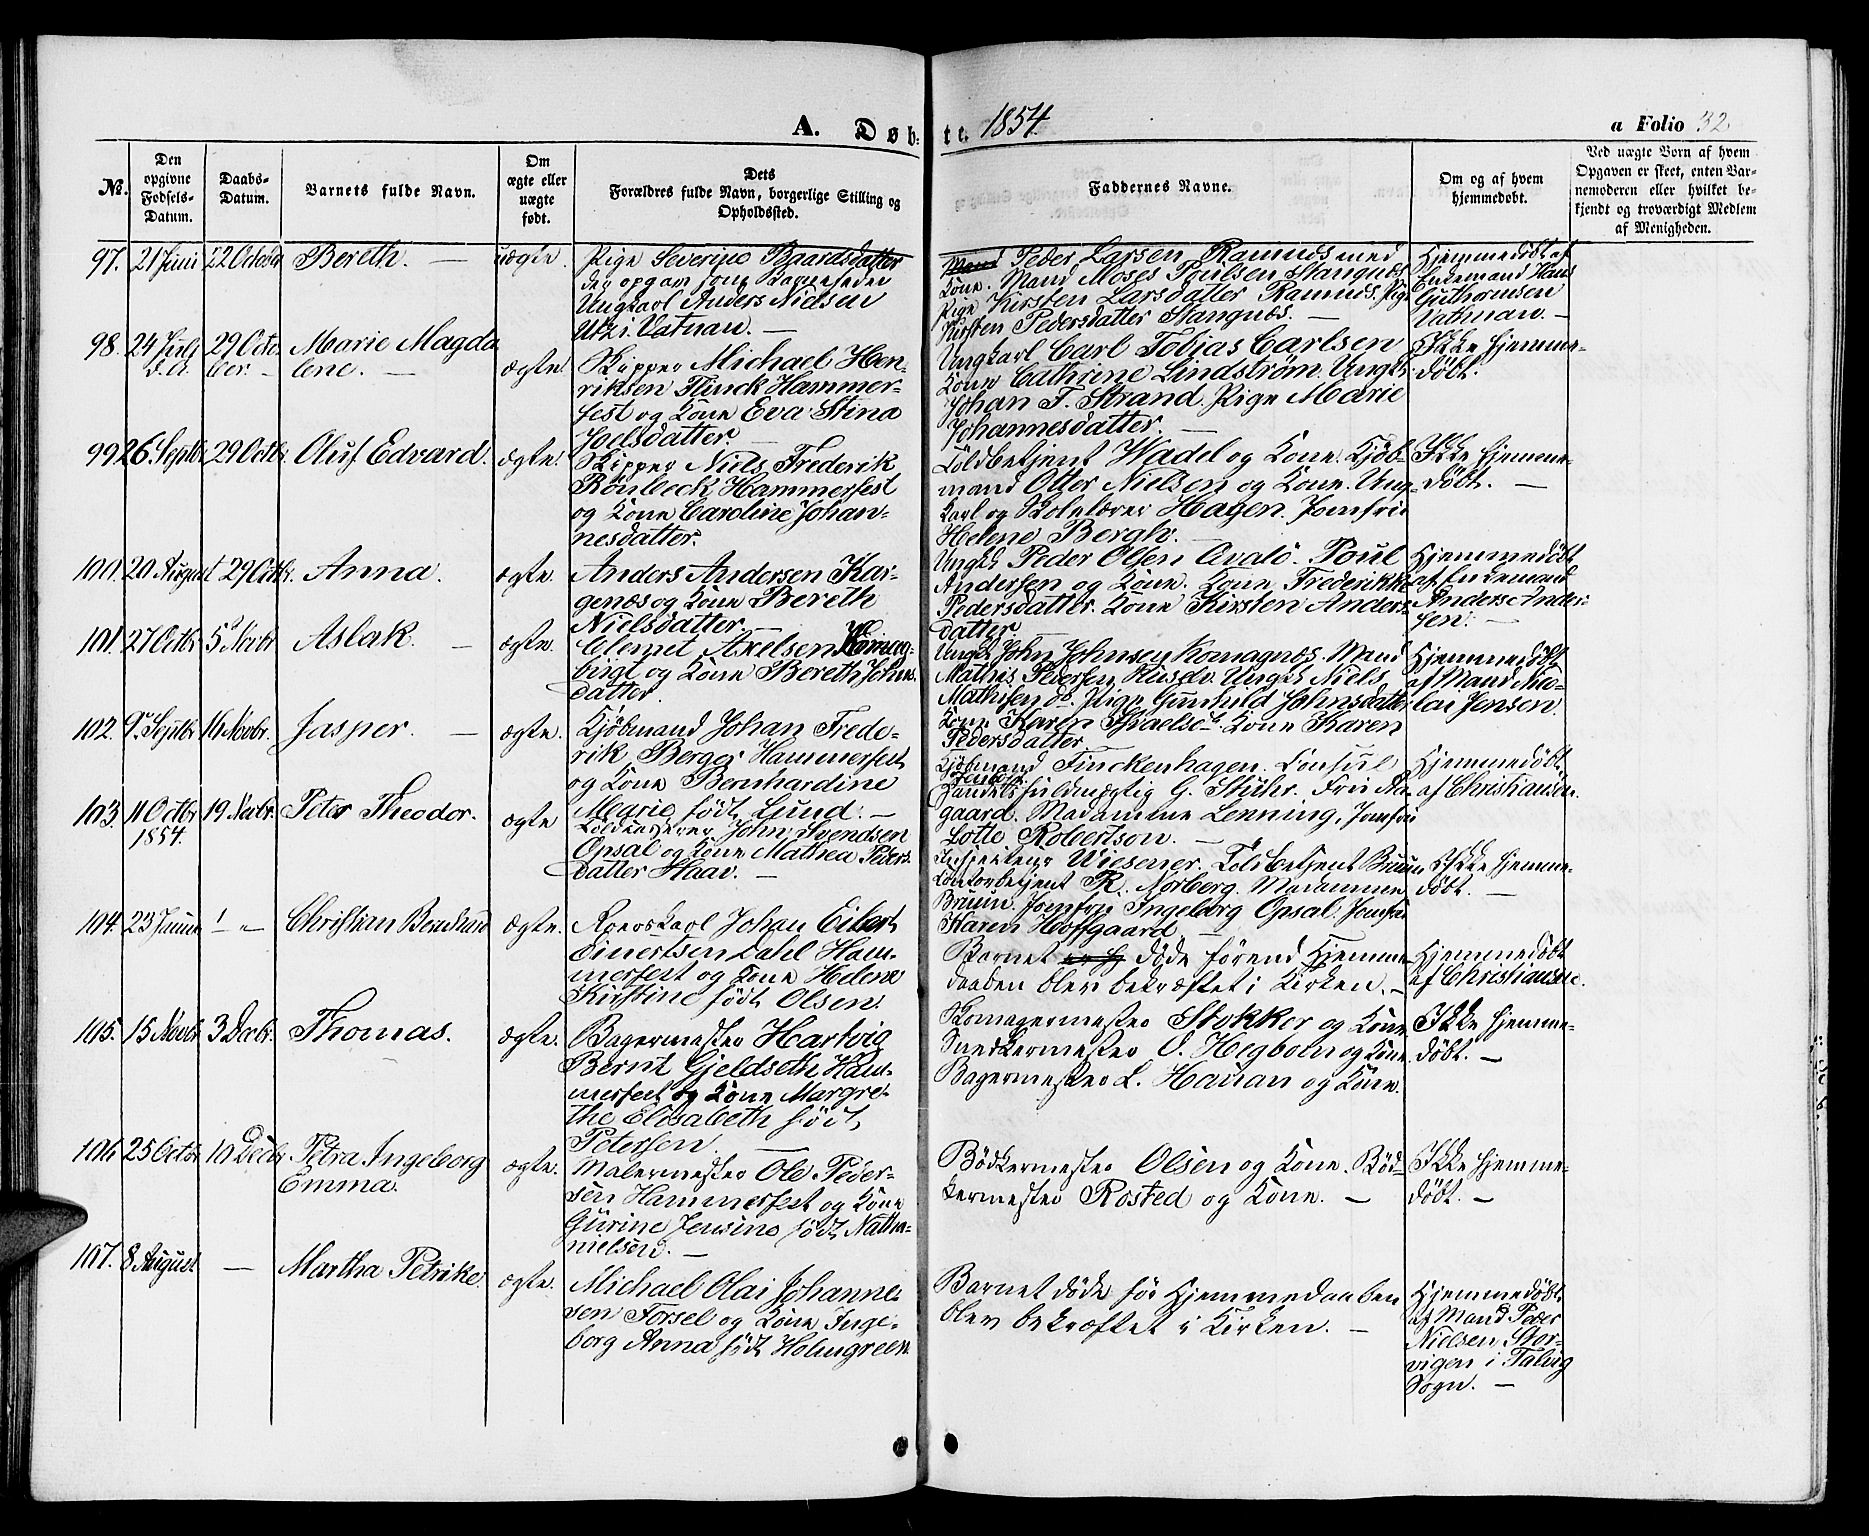 A. Døb-
te. 1854.
a Folio 32
No.
Den opgivne Fødsels-Datum.
Daabs-Datum.
Barnets fulde Navn.
Om ægte eller uægte født.
Dets Forældres fulde Navn, borgerlige Stilling og Opholdssted.
Faddernes Navne.
Om og af hvem hjemmedøbt.
Ved uægte Børn af hvem Opgaven er skeet, enten Barnemoderen eller hvilket bekjendt og troværdigt Medlem af Menigheden.
97. 21 Juni 22 October Bereth. — uægte.
Pige Severine Baardsdatter
der opgav som Barnefader
Ungkarl Anders Nielsen
Utzi Vatnan. —
Peder Larsen Ramnæs med
Kone. Mand Moses Poulsen Stangnæs
Pige Kirsten Larsdatter Ramnæs. Pige
Kirsten Pedersdatter Stangnæs. —
Hjemmedøbt af
Endemand Hans
Guthormsen
Vatnan. —
98. 24 Juli 29 October. — Marie Magdalene. — ægte.
Skipper Michael Hen-
riksen Finck Hammer-
fest og Kone Eva Stina
Joelsdatter. —
Ungkarl Carl Tobias Carlsen
Kone Cathrine Lindstrøm. Ungk.
Johan F. Strand. Pige Marie
Johannesdatter. —
Ikke hjemme-
døbt.
99. 26. Septbr 29 Octbr. Oluf Edvard. ægte.
Skipper Niels Frederik
Rönbeck Hammerfest
og Kone Caroline Johan-
nesdatter.
Toldbetjent Wadel og Kone. Kjøb-
mand Otter Nielsen og Kone. Ung-
karl og Skolelærer Hagen. Jomfru
Helene Bergh. —
Ikke hjemme-
døbt. —
100. 20 August 29 Octbr. Anna. ægte.
Anders Andersen Kar-
genæs og Kone Bereth
Nielsdatter. —
Ungk Peder Olsen Qvalö. Poul
Andersen og Kone. Kone Frederikke
Pedersdatter. Kone Kirsten Anders-
datter. —
Hjemmedøbt
af Endemand
Anders Ander-
sen. —
101. 27 Octbr 5 Novbr Aslak. — ægte.
Clemet Axelsen Komag-
vigt og Kone Bereth Johns
datter.
Ungk John Johnsen Komagnæs. Mand
Mathis Pedersen Kuselv. Ungk Niels
Mathisen do. Pige Gunhild Johnsdatter
Kone Karen Kone Karen
Pedersdatter.
Hjemmedøbt
af Mand
Jensen.
102. 9 Septbr 16 Novbr. Jasper. — ægte.
Kjøbmand Johan Frede-
rik Berger Hammerfest
og Kone Bernhardine
Marie født Lund. —
Kjøbmand Finckenhagen. Consul
Handelsfuldmægtig G. Stuhr. Fru
gaard. Madamme Lenning, Jomfru
Lotte Robertson. —
Hjemmedøbt
af Christiansen.
103. 11 Octbr 1854. 19 Novbr. Peter Theodor. ægte
John Svendsen
Opsal og Kone Mathea Peders-
datter Haav. —
Wiesener. Toldbetjent Bruun
Contorbetjent R. Norberg. Madammen
Bruun. Jomfru Ingeborg Opsal. Jomfru
Karen Hoffgaard
Ikke hjemme-
døbt. —
104. 23 Januar Christian Bernhard ægte.
Johan Eilert
Einertsen Dahl Ham-
merfest og Kone Helene
Kirstine født Olsen.
Barnet døde førend Hjemme-
daaben blev bekræftet i Kirken. —
Hjemmedøbt
af Christiansen.
105. 15 Novbr 3 Decbr. Thomas. ægte.
Bagermester Hartvig
Bernt Gjeldseth Ham-
merfest og Kone Margre-
the Elisabeth født
Petersen. —
Skomagermester Stokker og Kone
Snedkermester O. Hegbom og Kone.
Bagermester L. Hauan og Kone.
Ikke hjemme-
døbt. —
106 25 Octbr 10 Decbr Petra Ingeborg Emma. ægte.
Malermester Ole Peder-
sen Hammerfest og Kone
Gurine Jensine født Natha-
nielsen. —
Bødkermester Olsen og Kone. Bød-
kermester Rosted og Kone. —
Ikke hjemme-
døbt. —
107. 8 August — Martha Petrike. ægte.
Michael Olai Johanne-
sen Forsel og Kone Inge-
borg Anna født Holmgreen.
Barnet døde før Hjemmedaaben
blev bekræftet i Kirken. —
Hjemmedøbt
af Mand Peder
Nielsen Stor-
vigen i Talvig
Sogn. —